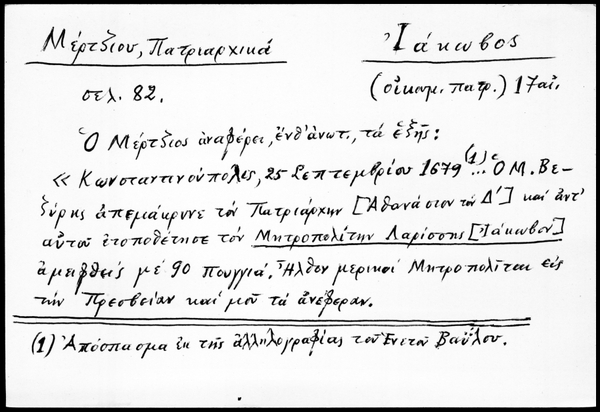 Μέρτζιου, Πατριαρχικά
Ἰάκωβος
σελ. 82.
(οἰκουμ. πατρ.) 17 αἰ.
Ὁ Μέρτζιος ἀναφέρει, ἔνθ' ἀνωτ., τά ἑξῆς:
«Κωνσταντινούπολις, 25 Σεπτεμβρίου 1679 (1)... Ὁ Μ. Βε-
ζύρης ἀπεμάκρυνε τόν Πατριάρχην [Ἀθανάσιον τόν Δ'] καί ἀντ'
αὐτοῦ ἐτοποθέτησε τόν Μητροπολίτην Λαρίσσης [Ἰάκωβον]
ἀμειφθείς μέ 90 πουγγιά. Ἦλθον μερικοί Μητροπολῖται εἰς
τήν Πρεσβείαν καί μοῦ τά ἀνέφεραν.
(1) Ἀπόσπασμα ἐκ τῆς ἀλληλογραφίας τοῦ Ἐνετοῦ Βαΐλου.